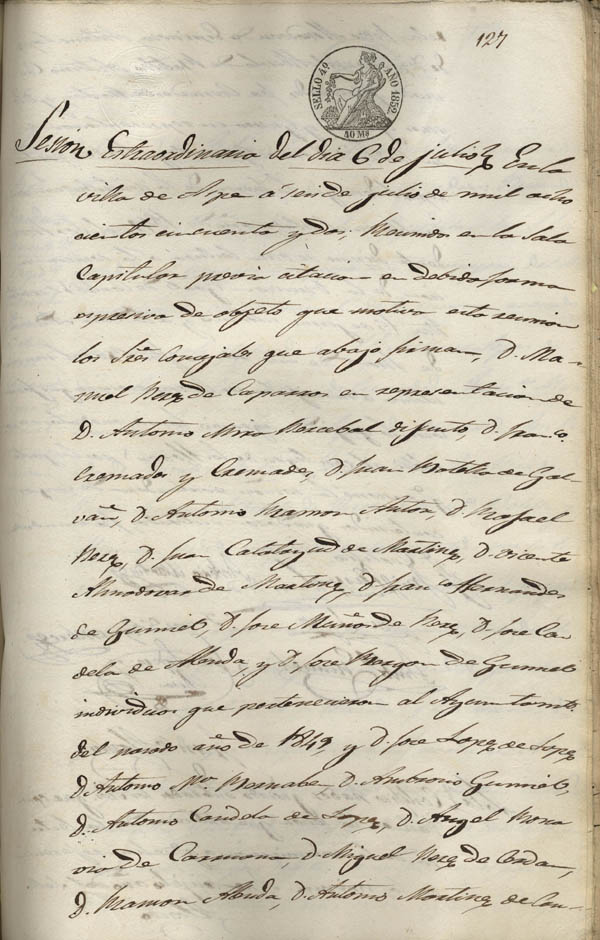 127
SELLO 4º AÑO 1859
40 Ms
Sesion Estraordinaria del dia 6 de julio En la
villa de Aspe á seis de julio de mil ocho
cientos cincuenta y dos; Reunidos en la Sala
Capitular previa citacion en debida forma
espresiva de objeto que motiva esta reunion
los Sres Concejales que abajo firman, D. Ma-
nuel Perez de Caparros en representacion de
D. Antonio Mira Percebal difunto, D. Franco.
Cremades y Cremades, D. Juan Botella de Gal-
vañ, D. Antonio Ramon Anton, D. Rafael
Perez, D. Juan Calatayud de Martinez, D. Vicente
Almodovar de Martinez, D. Franco Hernandez
de Gumiel, D. Jose Muños de Perez, D. Jose Can
dela de Alenda, y D. Jose de Gumiel
individuos que pertenecieron al Ayuntamto.
del pasado año de 1849 y D. Jose Lopez de Lopez
D. Antonio Ma. Bernabe, D. Ambrosio Gumiel,
D. Antonio Candela de Lopez, D. Angel
de Carmona, D. Miguel Perez de
D. Ramon Alenda, D. Antonio Martinez de